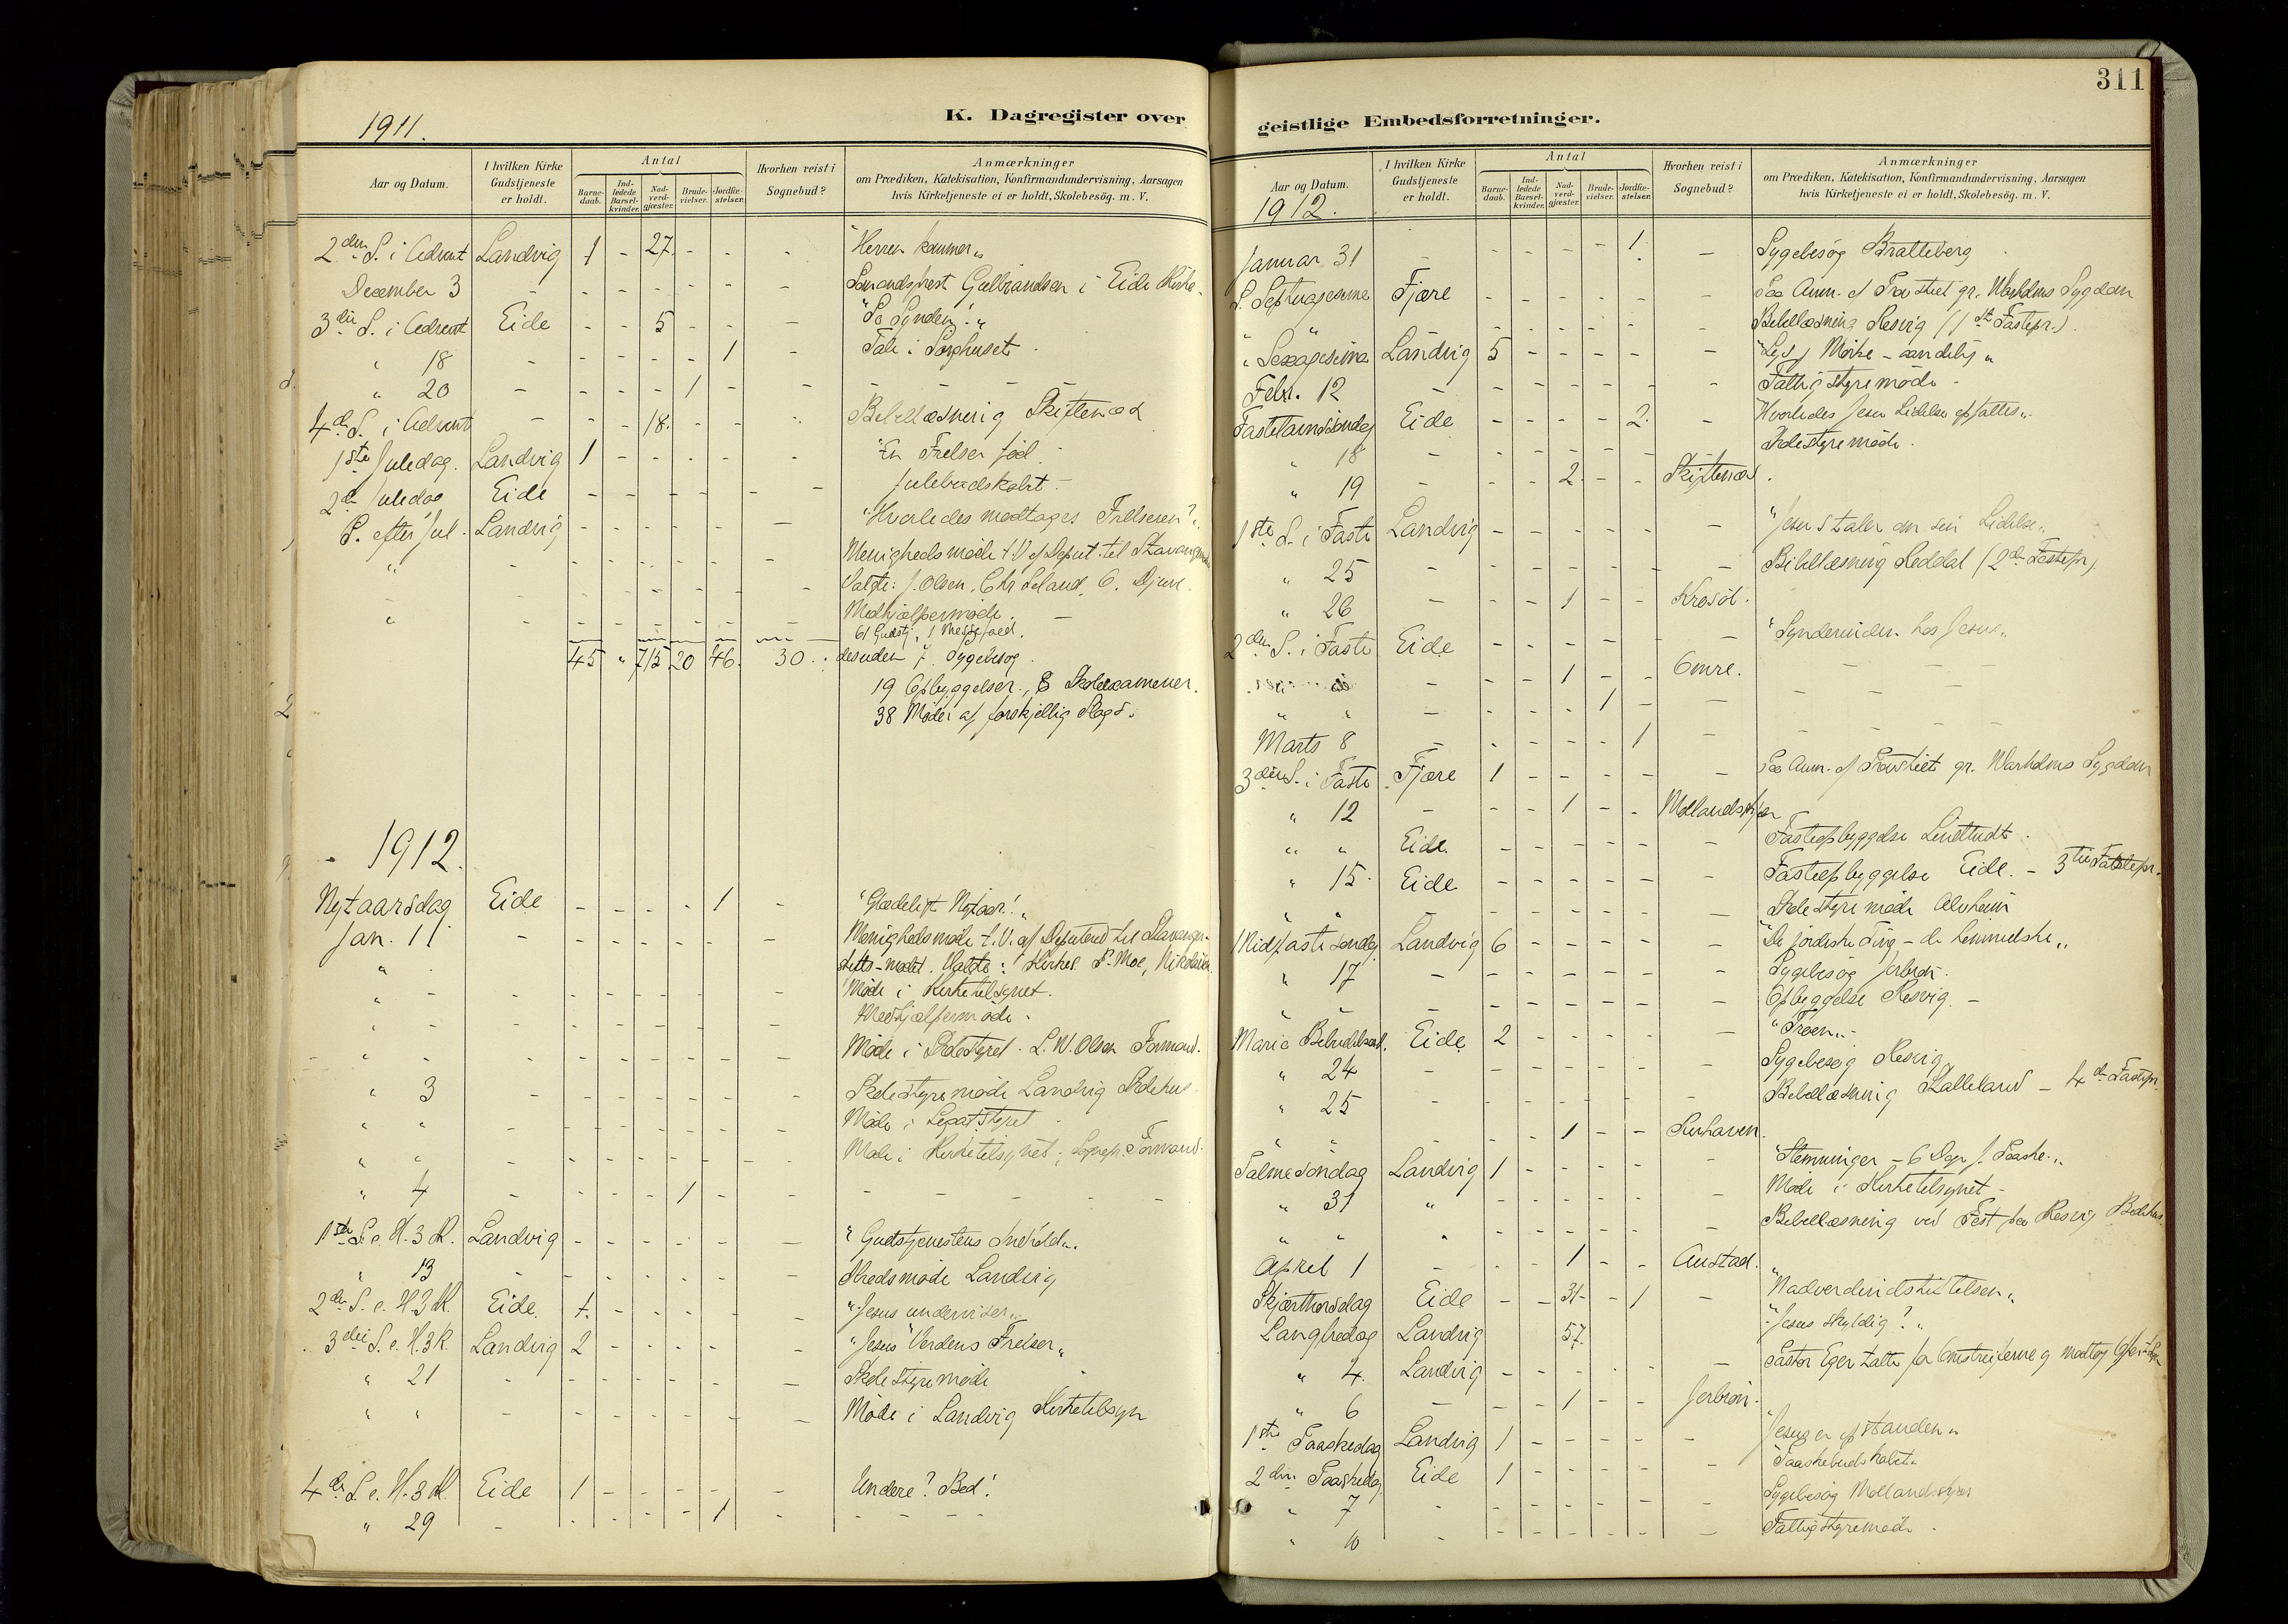 1911.
K. Dagregister over
Aar og Datum.
I hvilken Kirke Gudstjeneste er holdt.
Antal
Barne-daab.
Ind-ledede Barsel-kvinder.
Nad-verd-gjæster.
Brude-vielser.
Jordfæ-stelser.
Hvorhen reist i Sognebud?
Anmærkninger
om Prædiken, Katekisation, Konfirmandundervisning, Aarsagen
hvis Kirketjeneste ei er holdt, Skolebesög. m. V.
2den S. i Advent Landvig 1 - 27 - - - "Herren kommer"
December 3 - - - - - - - i Eide Kirke
3die S. i Advent Eide - - 5 - - -
" 18 - - - - - 1 - Tale i Sørghuset
" 20 - - - - 1 - - - - - -
4de S. i Advent - - - 18. - - - Bibellæsning Skiftenæs
1ste Juledag. Landvig 1 - - - - - "En Frelser fød
2den Juledag Eide - - - - - - Julebudskabet -
S. efter Jul. Landvig - - - - - - "Hvorledes modtages Frelseren?"
" - - - - - - - Menighedsmøde t. V. af Deput. til
" - - - - - - - Valgte: J. Olsen, Chr.
" - - - - - - - Medhjælpermøde. -
61 Gudstj.
45 " 715 20 46. 30. desuden 7 Sygebesøg
19 Opbyggelser, 8 Skoleexamener.
38 Møder af forskjellig Slags.
1912.
Nytaarsdag Eide - - - - 1 - "Glædeligt Nytaar!"
Jan. 1 - - - - - - - Menighedsmøde t. V. af
" - - - - - - -
" - - - - - - - Møde i Kirketilsynet.
" - - - - - - - Medhjælpermøde.
" - - - - - - - Møde i Skolestyret. Formand.
" 3 - - - - - - - Skolestyremøde Landvig Skolehus.
" " - - - - - - - Møde i Legatstyret
" " - - - - - - - Møde i Kirketilsynet; Sognepr. Formand.
" 4 - - - - 1 - - - - - -
1ste S. e. H. 3 K. Landvig - - - - - - "Gudstjenestens Indhold".
" 13 - - - - - - - Kredsmøde Landvig
2den S. e. H. 3 K. Eide 1 - - - - - "Jesus underviser"
3die S. e. H. 3 K. Landvig 2 - - - - - "Jesus Verdens Frelser"
" 21 - - - - - - - Skolestyremøde
" " - - - - - - - Møde i Landvig Kirketilsyn
4de S. e. H. 3 K. Eide 1 - - - - - Undere? Bed!
" 29 - - - - - 1 - - - - -
geistlige Embedsforretninger.
311
Aar og Datum.
1912.
I hvilken Kirke Gudstjeneste er holdt.
Antal
Barne-daab.
Ind-ledede Barsel-kvinder.
Nad-verd-gjæster.
Brude-vielser.
Jordfæ-stelser.
Hvorhen reist i Sognebud?
Anmærkninger
om Prædiken, Katekisation, Konfirmandundervisning, Aarsagen
hvis Kirketjeneste ei er holdt, Skolebesög. m. V.
Januar 31 - - - - - 1 - Sygebesøg Bratteberg
S. Septuagesima Fjære - - - - - - Paa Anm. af Provstiet gr. Warholms Sygdom
" " - - - - - - Bibellæsning Resvig (1ste Fastepr.)
" Sexagesima Landvig 5 - - - - - "Lys, Mørke - aandelig"
Febr. 12 - - - - - - - Fattigstyremøde -
Fastelavnssøndag Eide - - - - 2. - "Hvorledes Jesu Lidelse opfattes".
" 18 - - - - - - - Skolestyremøde.
" 19 - - - 2 - - Skiftenæs.
1ste S. i Faste Landvig - - - - - - "Jesus taler om sin Lidelse"
" 25 - - - - - - - Bibellæsning Reddal (2den Fastepr.)
" 26 - - - 1 - -
2den S. i Faste Eide - - - - - - "Synderinden hos Jesus"
- - - 1 - - Omre. - - -
" " - - - - 1 - - - -
Marts 8 - - - - - 1 - - -
3die S. i Faste Fjære 1 - - - - - Paa Anm. af Provstiet gr. Warholms Sygdom
" 12 - - - 1 - -
" " Eide - - - - - - Fasteopbyggelse
" 15 Eide - - - - - - Fasteopbyggelse Eide. - 3die Fastepr.
" " - - - - - - - Skolestyremøde
Midfastesøndag Landvig 6 - - - - - "De jordiske Ting - de himmelske"
" 17 - - - - - - - Sygebesøg
" " - - - - - - - Opbyggelse Resvig. -
Mariæ Bebudelsesd. Eide 2 - - - - - "Troen"
" 24 - - - - - - - Sygebesøg Resvig
" 25 - - - - - - - Bibellæsning - 4de Fastepr.
" " - - - 1 - -
Palmesøndag Landvig 1 - - - - - "Stemninger - 6 Dage f. Paaske."
" 31 " - - - - - - Møde i Kirketilsynet -
" " " - - - - - - Bibellæsning ved Fest paa Resvig Bedehus.
April 1 - - - 1 - - Austad.
Skjærthorsdag Eide - - 31 - 1 - "Nadverdindstiftelsen"
Langfredag Landvig 57. "Jesus skyldig?"
" 4. Landvig - - - - - - Pastor Eger talte for Omstreiferne og modtog
" 6 - - - 1 - -
1ste Paaskedag Landvig 1 - - - - - "Jesus er opstanden"
2den Paaskedag Eide 1 - - - - - "Paaskebudskabet"
" 7 - - - - - - - Sygebesøg
" 10 - - - - - - - Fattigstyremøde.